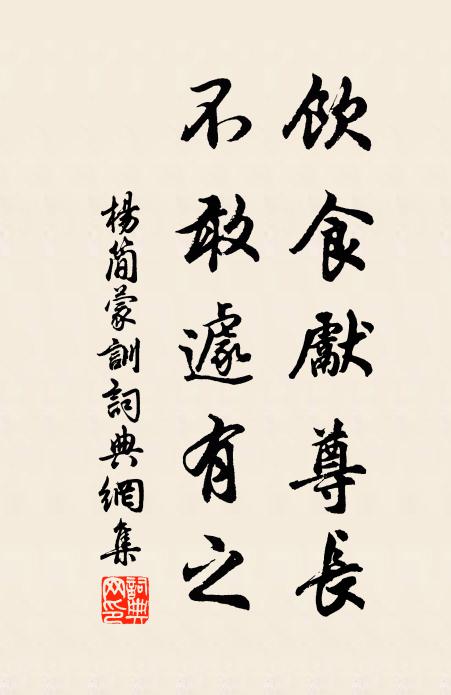 飲食獻尊長
不敢遽有之
楊簡蒙訓詞典網集
詞典網印